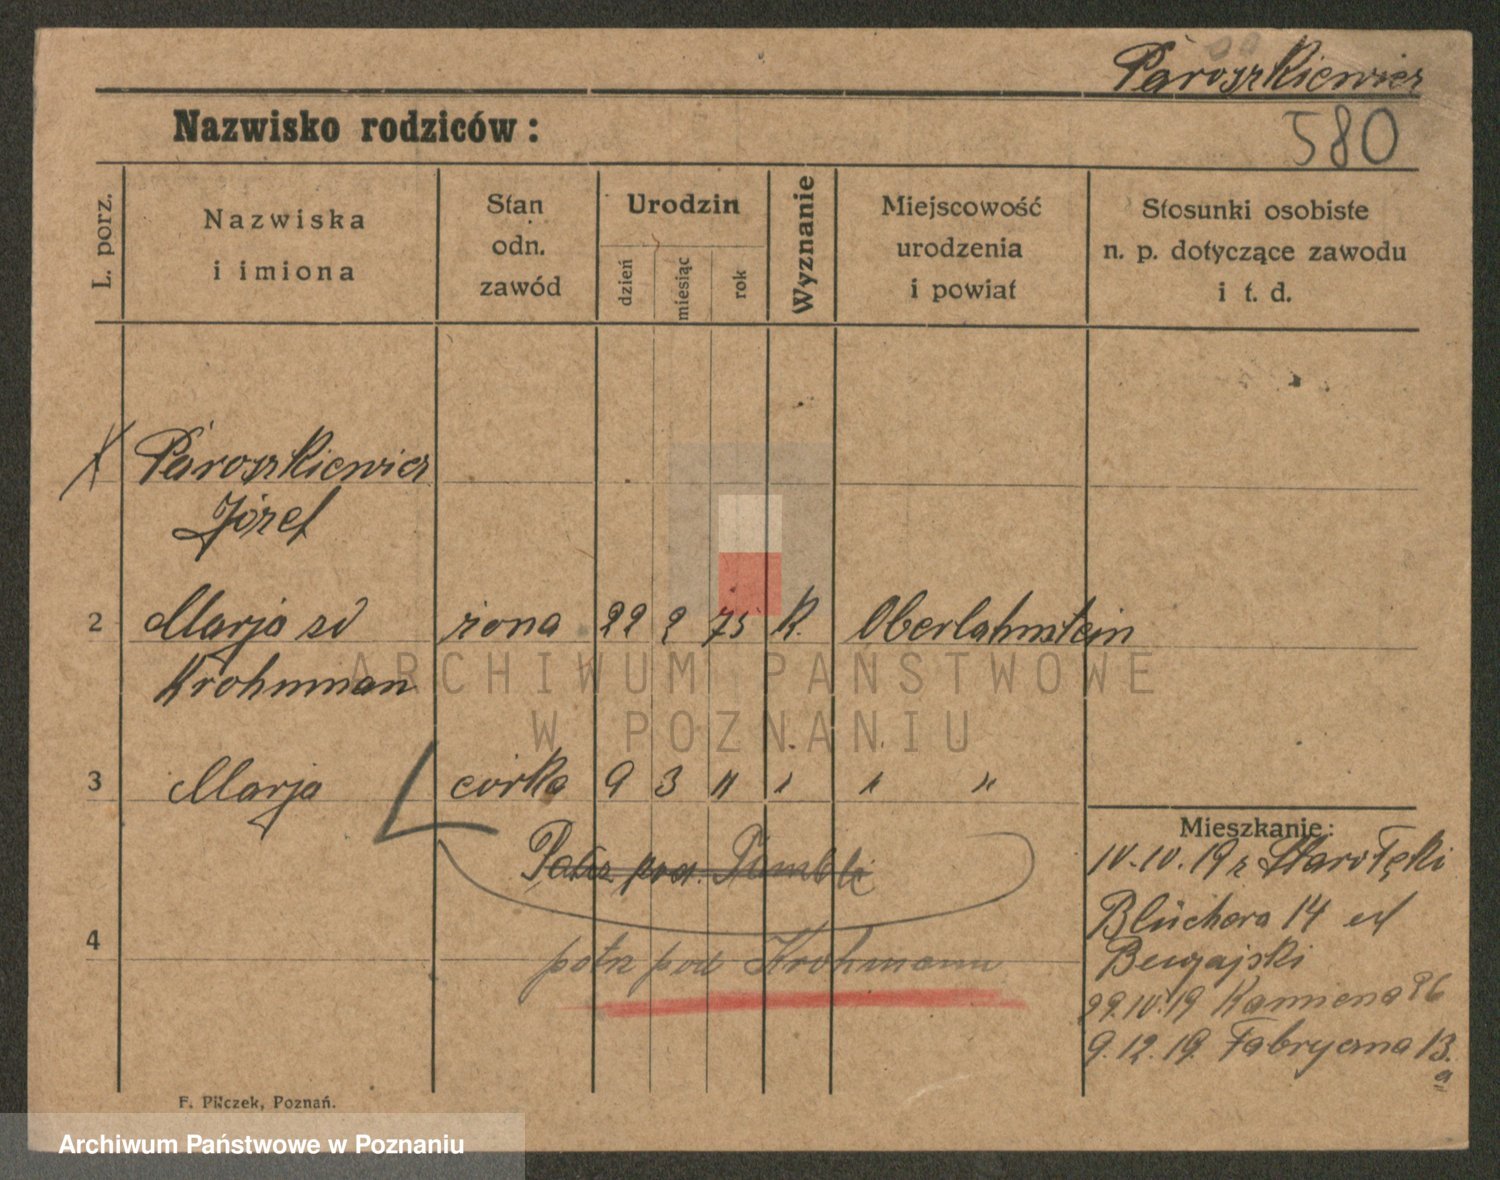 Paroszkiewicz
Nazwisko rodziców:
580
L. porz.
Nazwiska
i imiona
Stan
odn.
zawód
Urodzin
dzień
miesiąc
rok
Wyznanie
Miejscowość
urodzenia
i powiat
Stosunki osobiste
n. p. dotyczące zawodu
i t. d.
Paroszkiewicz
Józef
2 Marja zd żona 22 2 75 K. Oberlahnstein
Krohmman
3 Marja córka 9 3 " " " "
Patrz pod.
4
patrz pod Krohmann
Mieszkanie:
10.10.19 r Starołęki
Blüchera 14 
29.10.19 Kamiena 86
9.12.19. Fabryczna 13.
a
F. Pilczek, Poznań.
ARCHIWUM PAŃSTWOWE
W POZNANIU
Archiwum Państwowe w Poznaniu